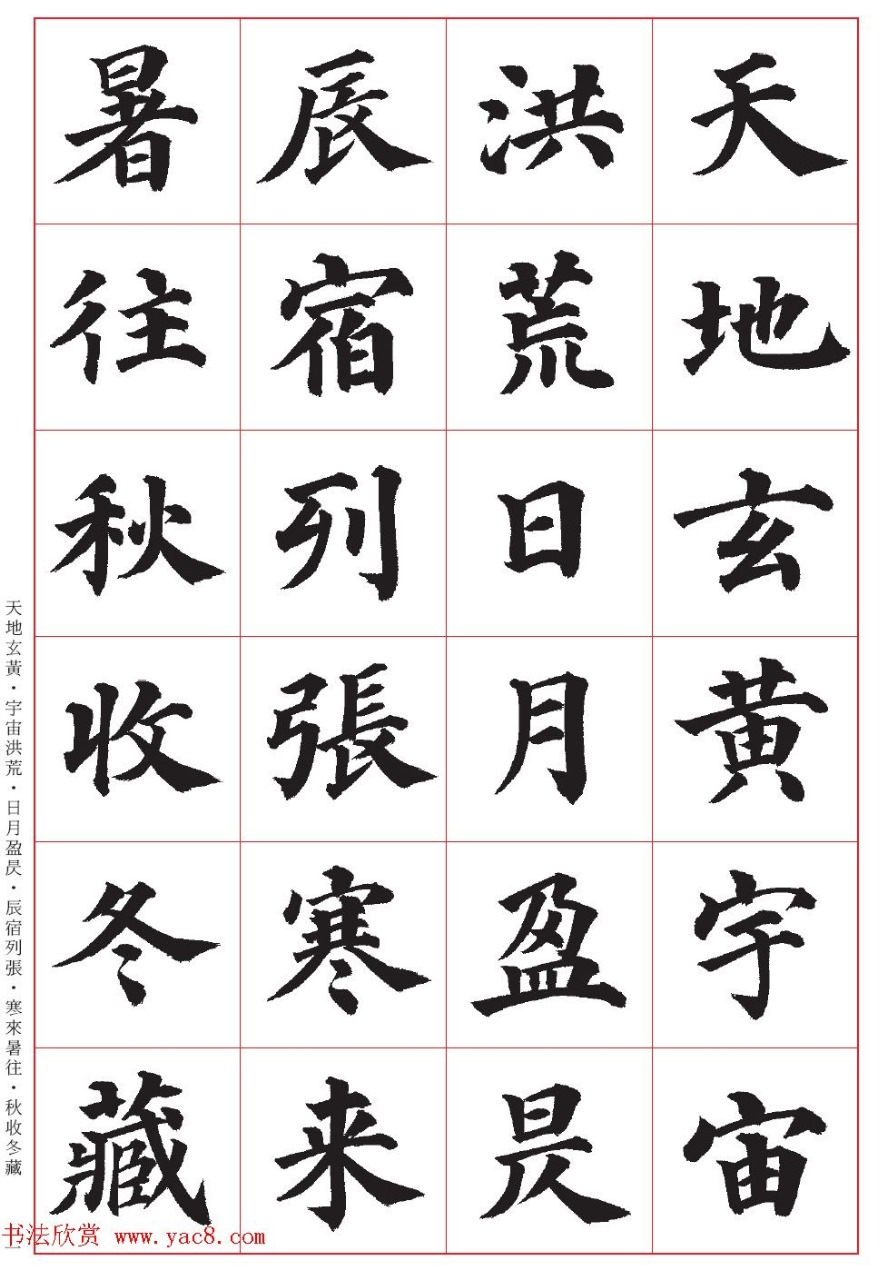 天地玄黄宇宙
洪荒日月盈昃
辰宿列張寒来
暑往秋收冬藏
天地玄黃·宇宙洪荒·日月盈昃·辰宿列張·寒來暑往·秋收冬藏
一
书法欣赏 www.yac8.com